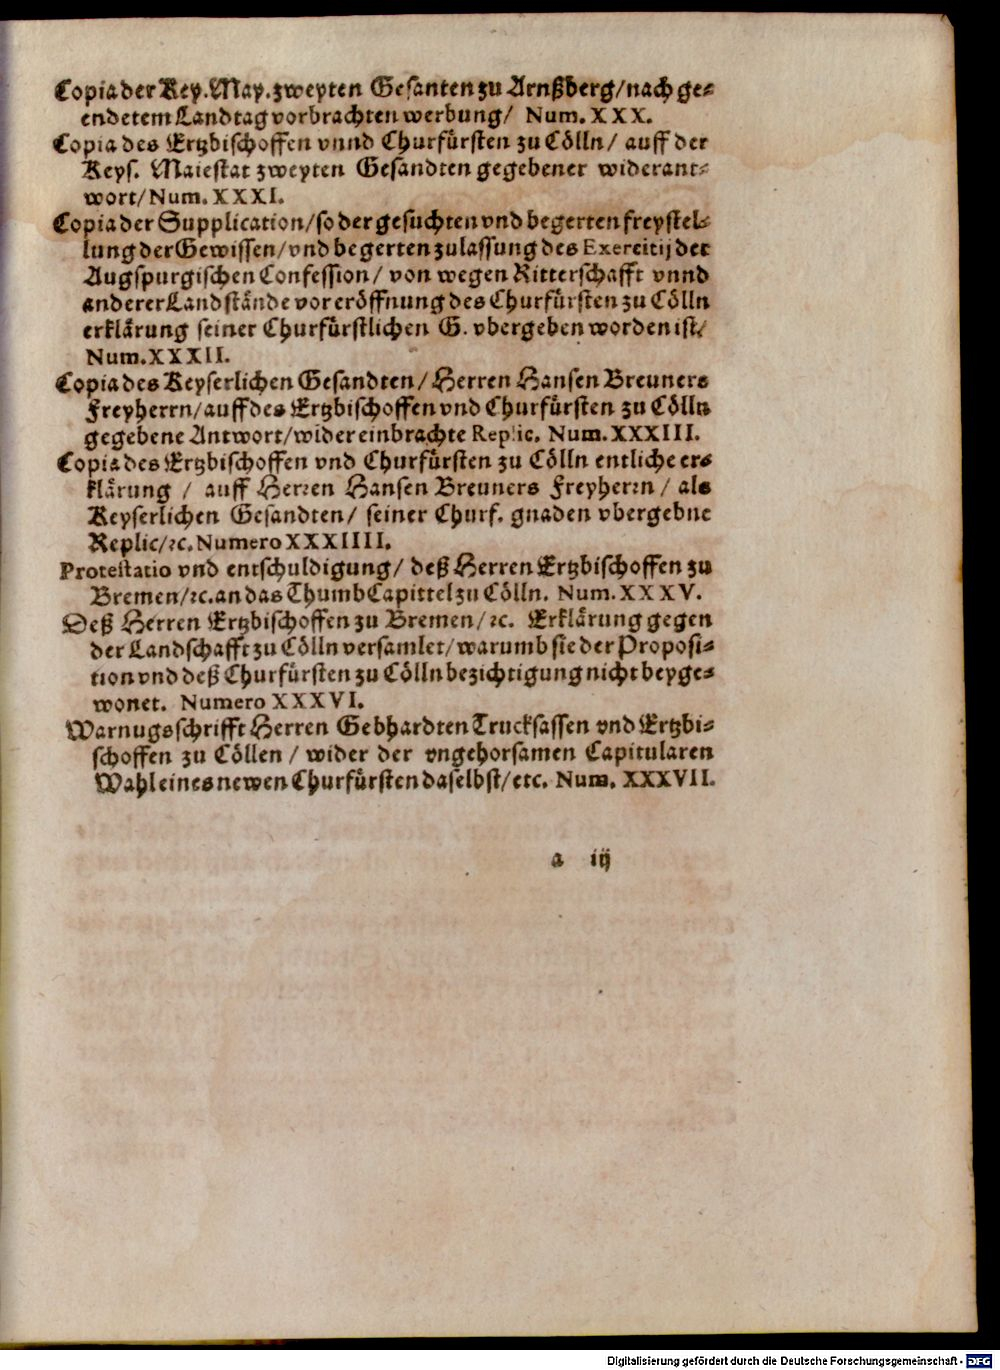 Copia der Key. May. zweyten Gesanten zu Arnßberg/nach ge-
endetem Landtag vorbrachten werbung/ Num. XXX.
Copia des Ertzbischoffen vnnd Churfürsten zu Cölln/ auff der
Keys. Maiestat zweyten Gesandten gegebener widerant-
wort/Num. XXXI.
Copia der Supplication/so der gesuchten vnd begerten freystel-
lung der Gewissen/vnd begerten zulassung des Exercitij der
Augspurgischen Confession/ von wegen Ritterschafft vnnd
anderer Landstände vor eröffnung des Churfürsten zu Cölln
erklärung seiner Churfürstlichen G. vbergeben worden ist/
Num. XXXII.
Copia des Keyserlichen Gesandten/ Herren Hansen Breuners
Freyherrn/auff des Ertzbischoffen vnd Churfürsten zu Cölln
gegebene Antwort/wider einbrachte Replic. Num. XXXIII.
Copia des Ertzbischoffen vnd Churfürsten zu Cölln entliche er-
klärung / auff Herren Hansen Breuners Freyherrn/ als
Keyserlichen Gesandten/ seiner Churf. gnaden vbergebne
Replic/ꝛc. Numero XXXIIII.
Protestatio vnd entschuldigung/ deß Herren Ertzbischoffen zu
Bremen/ꝛc. an das Thumb Capittel zu Cölln. Num. XXXV.
Deß Herren Ertzbischoffen zu Bremen/ꝛc. Erklärung gegen
der Landschafft zu Cölln versamlet/warumb sie der Proposi-
tion vnd deß Churfürsten zu Cölln bezichtigung nicht beyge-
wonet. Numero XXXVI.
Warnugsschrifft Herren Gebhardten Trucksassen vnd Ertzbi-
schoffen zu Cöllen/ wider der vngehorsamen Capitularen
Wahl eines newen Churfürsten daselbst/etc. Num. XXXVII.
a iij
Digitalisierung gefördert durch die Deutsche Forschungsgemeinschaft - DFG